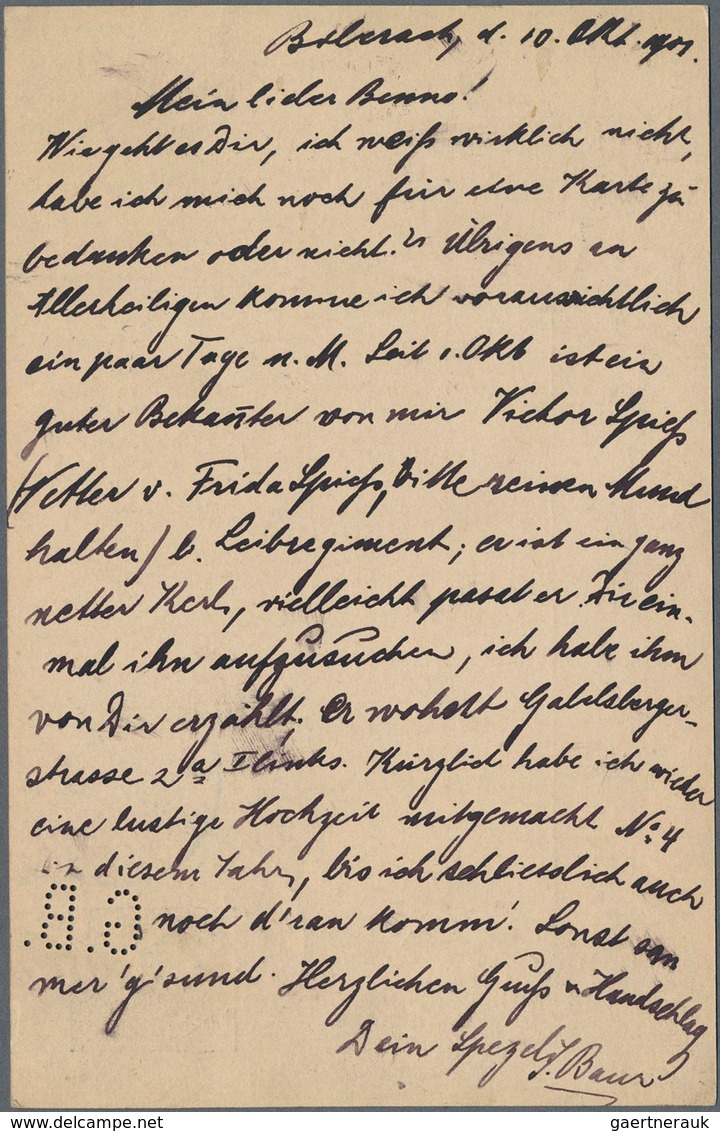 Biberach, d. 10. Okt. 1901.
Mein lieber Benno!
Wie geht es Dir, ich weiß wirklich nicht,
habe ich mich noch für eine Karte zu
bedanken oder nicht. Übrigens an
Allerheiligen komme ich voraussichtlich
ein paar Tage n. M. Seit 1. Okt ist ein
guter Bekan̄ter von mir Victor Spieß
(Vetter v. Frida Spieß, bitte reinen Mund
halten) b. Leibregiment; er ist ein ganz
netter Kerl, vielleicht passt er Dir ein-
mal ihn aufzusuchen, ich habe ihm
von Dir erzählt. Er wohnt Gabelsberger-
strasse 2a II links. Kürzlich habe ich wieder
eine lustige Hochzeit mitgemacht No 4
in diesem Jahr, bis ich schliesslich auch
noch d'ran komm'. Sonst san
mer 'g'sund. Herzlichen Gruß u Handschlag
Dein Spezel J. Baur
G. B.
gaertnerauk